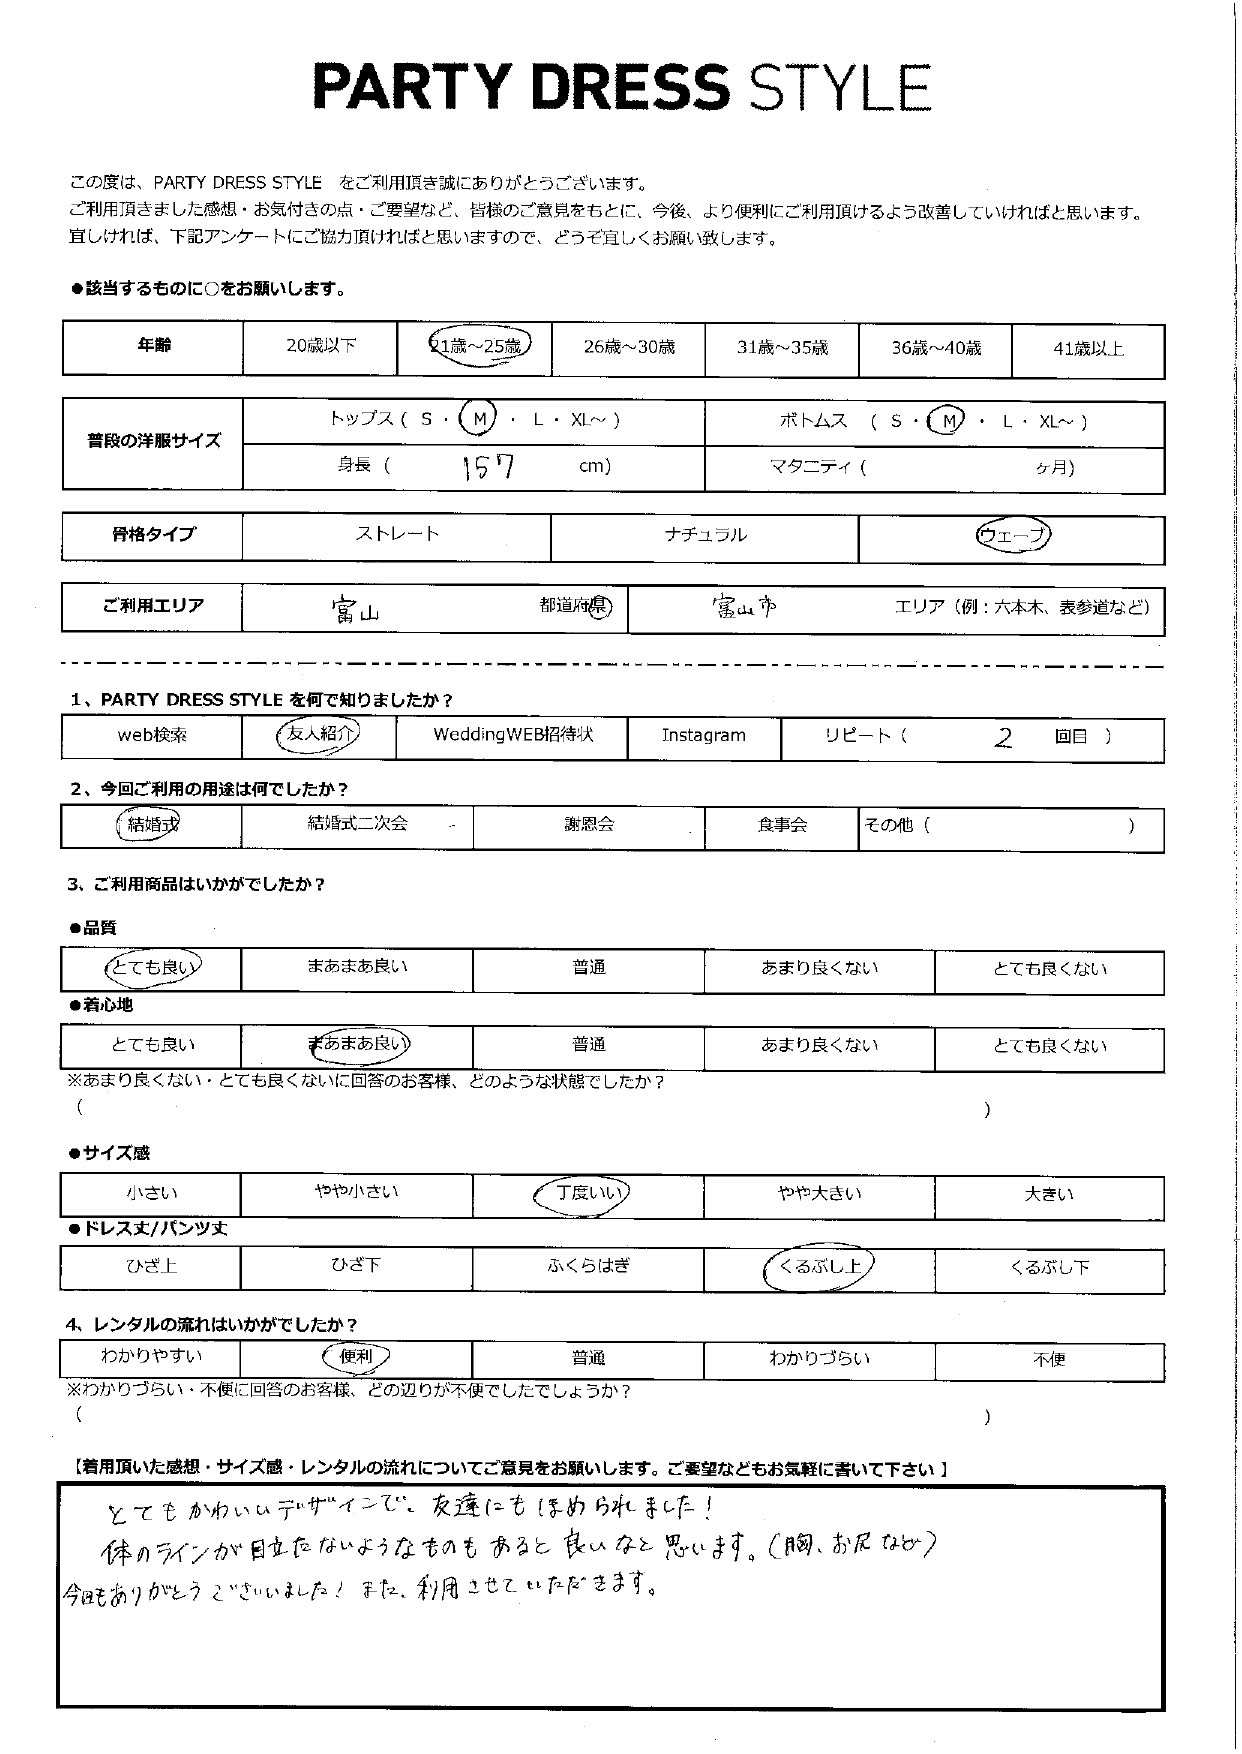 PARTY DRESS STYLE
この度は、PARTY DRESS STYLE をご利用頂き誠にありがとうございます。
ご利用頂きました感想・お気付きの点・ご要望など、皆様のご意見をもとに、今後、より便利にご利用頂けるよう改善していければと思います。
宜しければ、下記アンケートにご協力頂ければと思いますので、どうぞ宜しくお願い致します。
●該当するものに○をお願いします。
年齢 20歳以下 21歳～25歳 26歳～30歳 31歳～35歳 36歳～40歳 41歳以上
普段の洋服サイズ トップス ( S ・ M ・ L ・ XL～ ) ボトムス ( S ・ M ・ L ・ XL～ )
身長 ( 157 cm) マタニティ ( ヶ月)
骨格タイプ ストレート ナチュラル ウェーブ
ご利用エリア 富山 都道府県 富山市 エリア（例：六本木、表参道など）
1、PARTY DRESS STYLE を何で知りましたか？
web検索 友人紹介 WeddingWEB招待状 Instagram リピート ( 2 回目 )
2、今回ご利用の用途は何でしたか？
結婚式 結婚式二次会 謝恩会 食事会 その他 ( )
3、ご利用商品はいかがでしたか？
●品質
とても良い まあまあ良い 普通 あまり良くない とても良くない
●着心地
とても良い まあまあ良い 普通 あまり良くない とても良くない
※あまり良くない・とても良くないに回答のお客様、どのような状態でしたか？
( )
●サイズ感
小さい やや小さい 丁度いい やや大きい 大きい
●ドレス丈/パンツ丈
ひざ上 ひざ下 ふくらはぎ くるぶし上 くるぶし下
4、レンタルの流れはいかがでしたか？
わかりやすい 便利 普通 わかりづらい 不便
※わかりづらい・不便に回答のお客様、どの辺りが不便でしたでしょうか？
( )
【着用頂いた感想・サイズ感・レンタルの流れについてご意見をお願いします。ご要望などもお気軽に書いて下さい】
とてもかわいいデザインで、友達にもほめられました！
体のラインが目立たないようなものもあると良いなと思います。（胸、お尻など）
今回もありがとうございました！また、利用させていただきます。